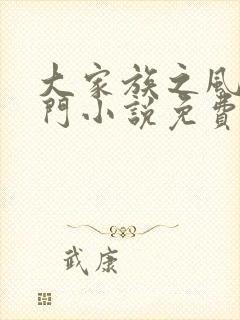 大家族之風
門小說免費
武康